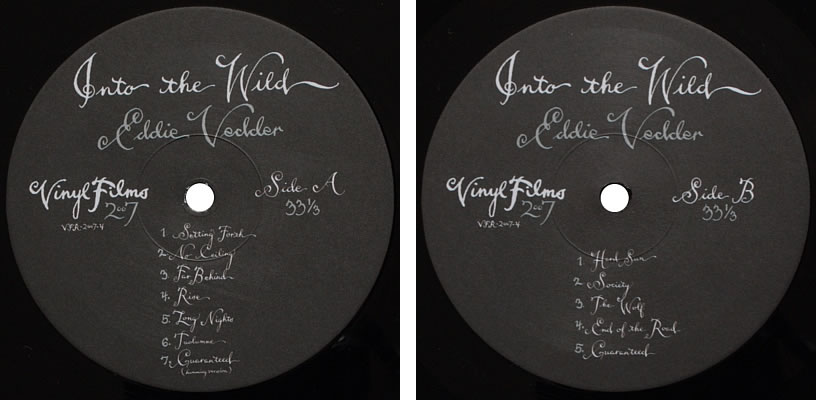 Into the Wild
Eddie Vedder
Vinyl Films
2007
VFR-2007-4
Side A
33 1/3
1. Setting Forth
2. No Ceiling
3. Far Behind
4. Rise
5. Long Nights
6. Tuolumne
7. Guaranteed
(humming version)
Into the Wild
Eddie Vedder
Vinyl Films
2007
VFR-2007-4
Side B
33 1/3
1. Hard Sun
2. Society
3. The Wolf
4. End of the Road
5. Guaranteed